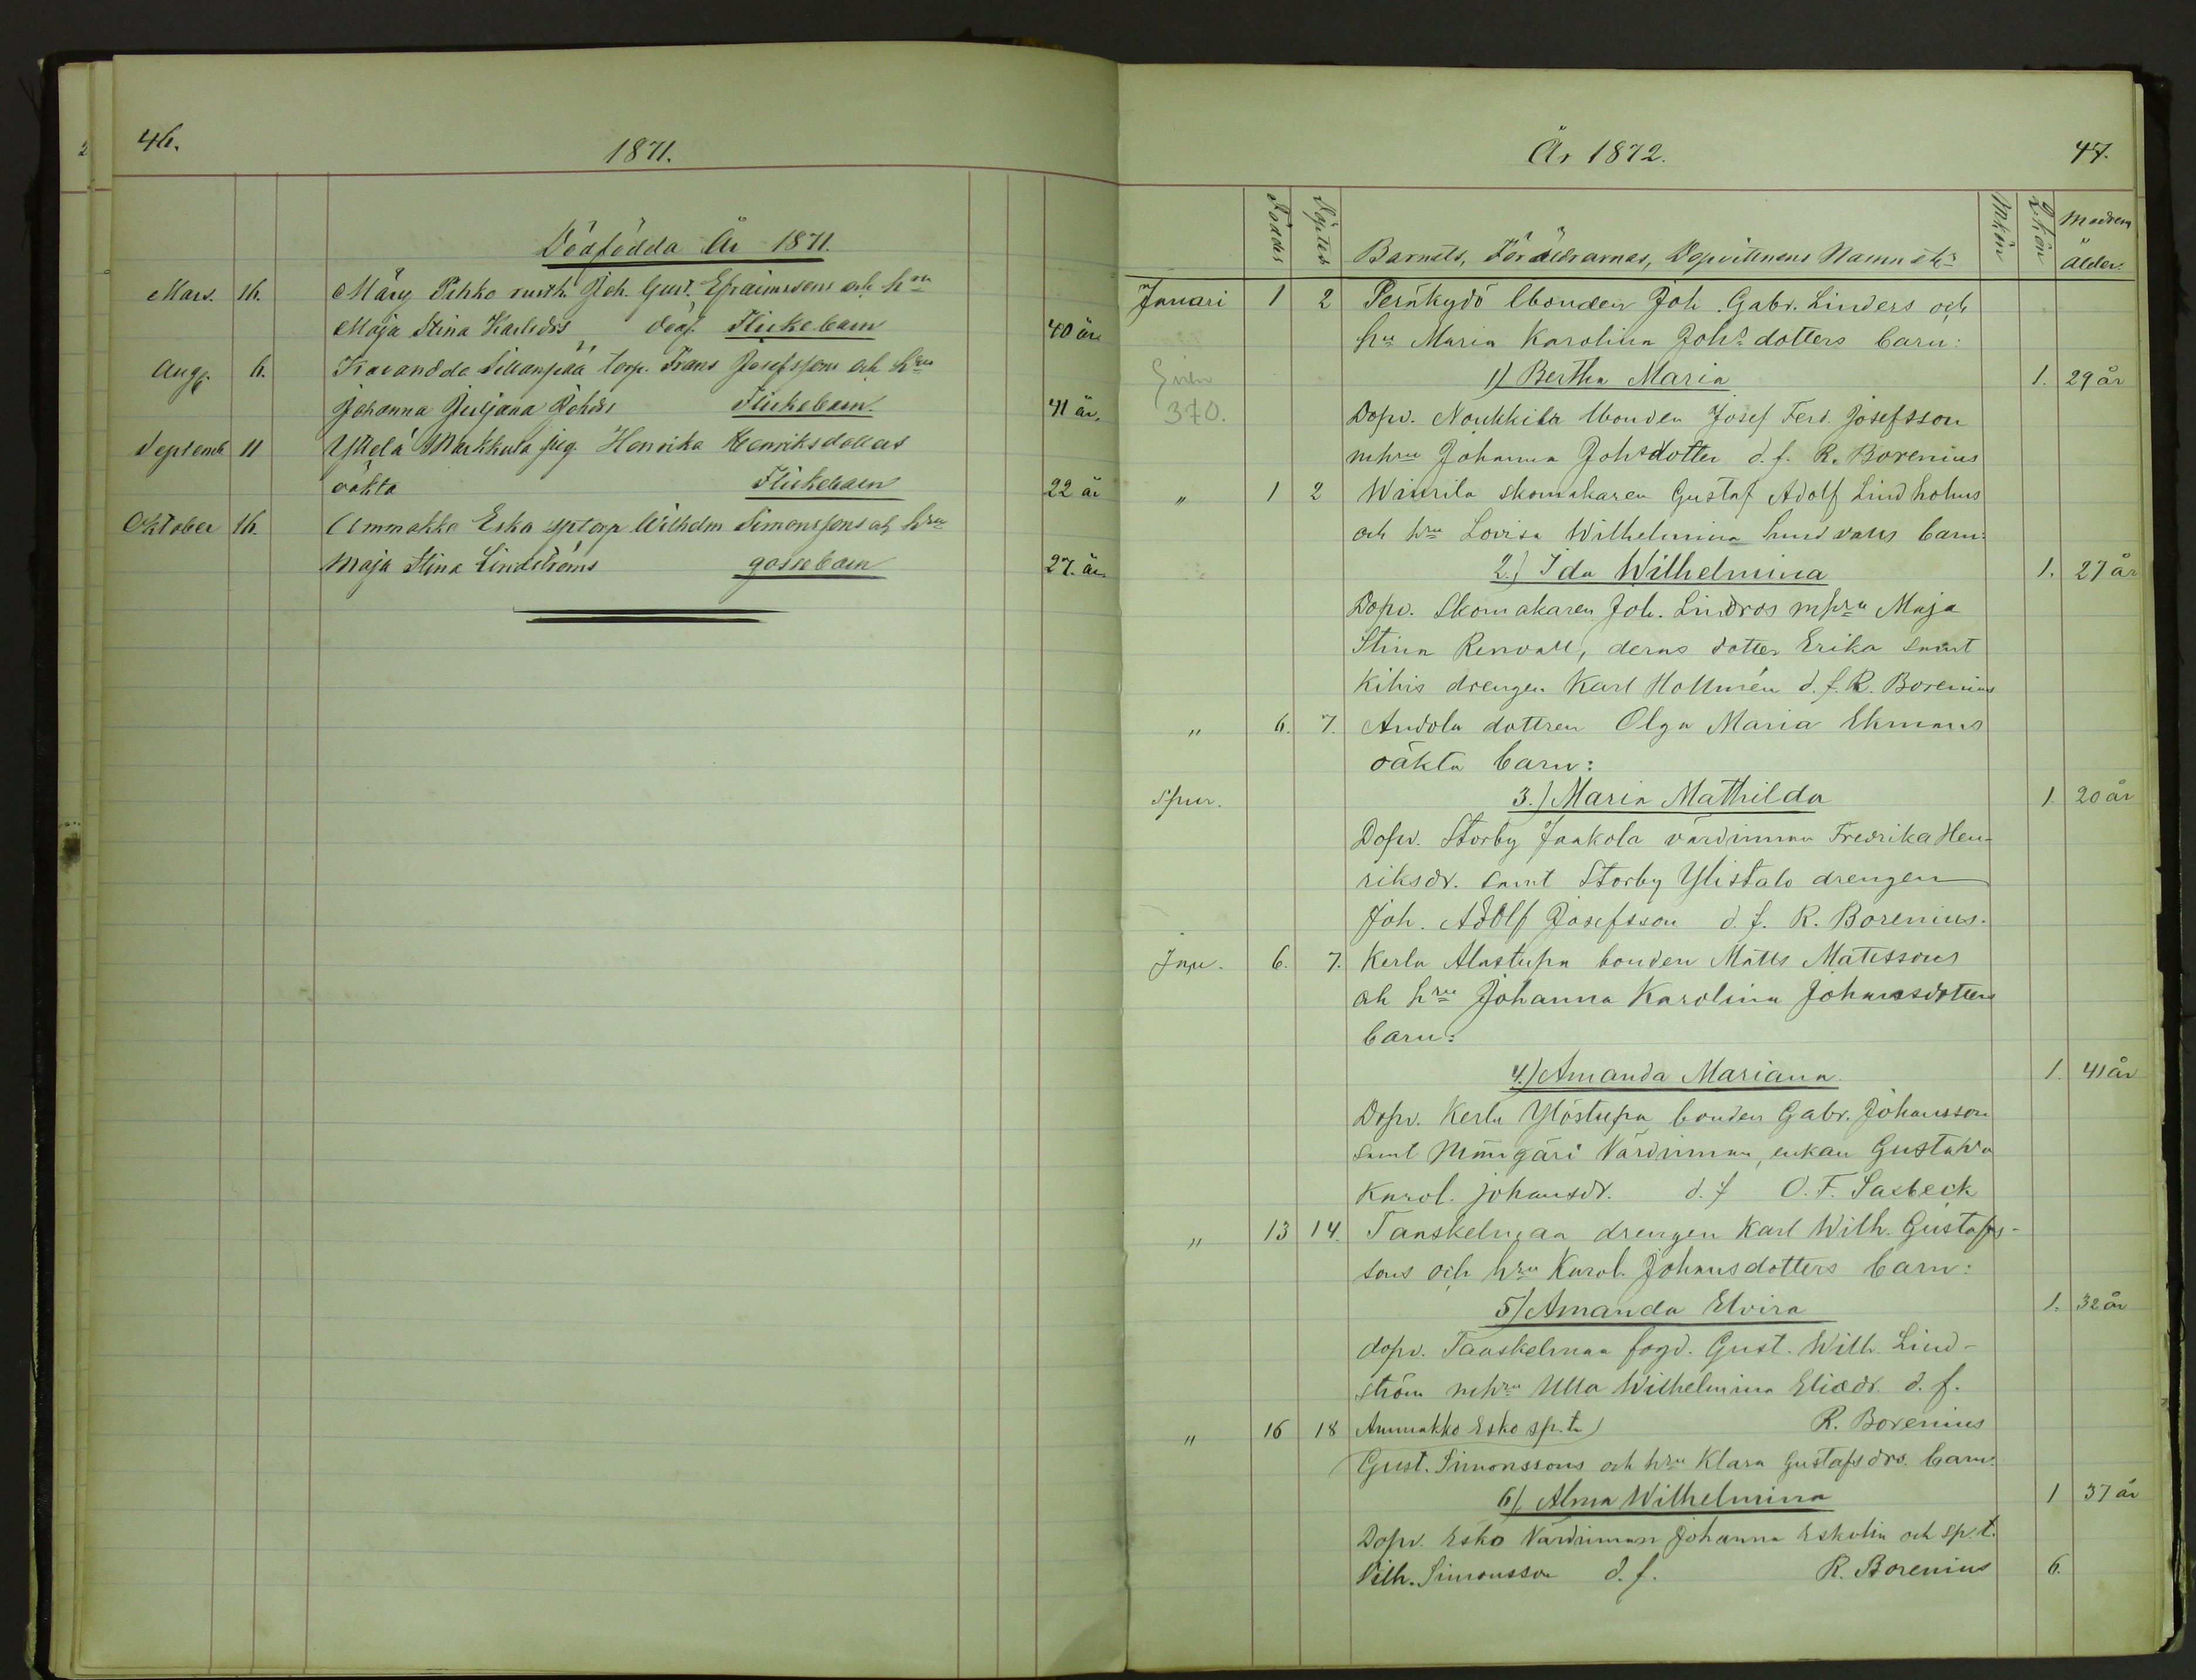 46.
1871.
Dödfödda År 1871.
Mars. 16. Märy Pihko rusth. Joh. Gust. Efraimssons och hru
Maja Stina Karlsdrs dödf. Flickebarn 40 år
Aug. 6. Sillanpää torp. Frans Josefssons och hru
Johanna Juljana Johdrs Flickebarn. 41 år.
Septemb 11 Yttelä Markkula pig. Henrika Henriksdotters
oäkta Flickebarn 22 år
Oktober 16. Ammakko Esko sptorp Wilhelm Simonssons och hru
Maja Stina Lindströms gossebarn 27. år.
År 1872.
47.
Föddes Döptes Barnets, Föräldrarnas, Dopvittnens Namn etc Mkön Qkön Modrens ålder.
Januari 1 2 Peräkydö bonden Joh. Gabr. Linders och
hru Maria Karolina Johsdotters barn:
1) Bertha Maria 1. 29 år
370. Dopv. Noukkila bonden Josef Ferd. Josefsson
mhru Johanna Johsdotter d. f. R. Borenius
" 1 2 Wäurila skomakaren Gustaf Adolf Lindholms
och hru Lovisa Wilhelmina Lundvalls barn:
2.) Ida Wilhelmina 1. 27 år
Dopv. Skomakaren Joh. Lindros mhru Maja
Stina Renvall, deras dotter Erika samt
Kihis drengen Karl Hollmén d. f. R. Borenius
" 6. 7. Andola dottren Olga Maria Ekmans
oäkta barn:
Spur. 3.) Maria Mathilda 1. 20 år
Dopv. Storby Jaakola värdinnan Fredrika Hen-
riksdr. samt Storby Ylistalo drengen
Joh. Adolf Josefsson d. f. R. Borenius.
Janu. 6. 7. Kerla Alastupa bonden Matts Matssons
och hru Johanna Karolina Johansdotters
barn:
4.) Amanda Mariana. 1. 41 år
Dopv. Kerla Ylöstupa bonden Gabr. Johansson
samt Mängäri Värdinnan, enkan Gustava
Karol. Johansdr. d. f O. F. Salbeck
" 13 14. Tanskelmaa drengen Karl Wilh. Gustafs-
sons och hru Karol. Johansdotters barn:
5) Amanda Elvira 1. 32 år
dopv. Tanskelmaa fogd. Gust. Wilh. Lind-
ström mhru Ulla Wilhelmina Eliædr. d. f.
" 16 18 Ammakko Esko sp.t.) R. Borenius
Gust. Simonssons och hru Klara Gustafsdrs. barn:
6) Alma Wilhelmina 1 37 år
Dopv. Esko Värdinnan Johanna Eskolin och sp.t.
Vilh. Simonsson d. f. R. Borenius 6.